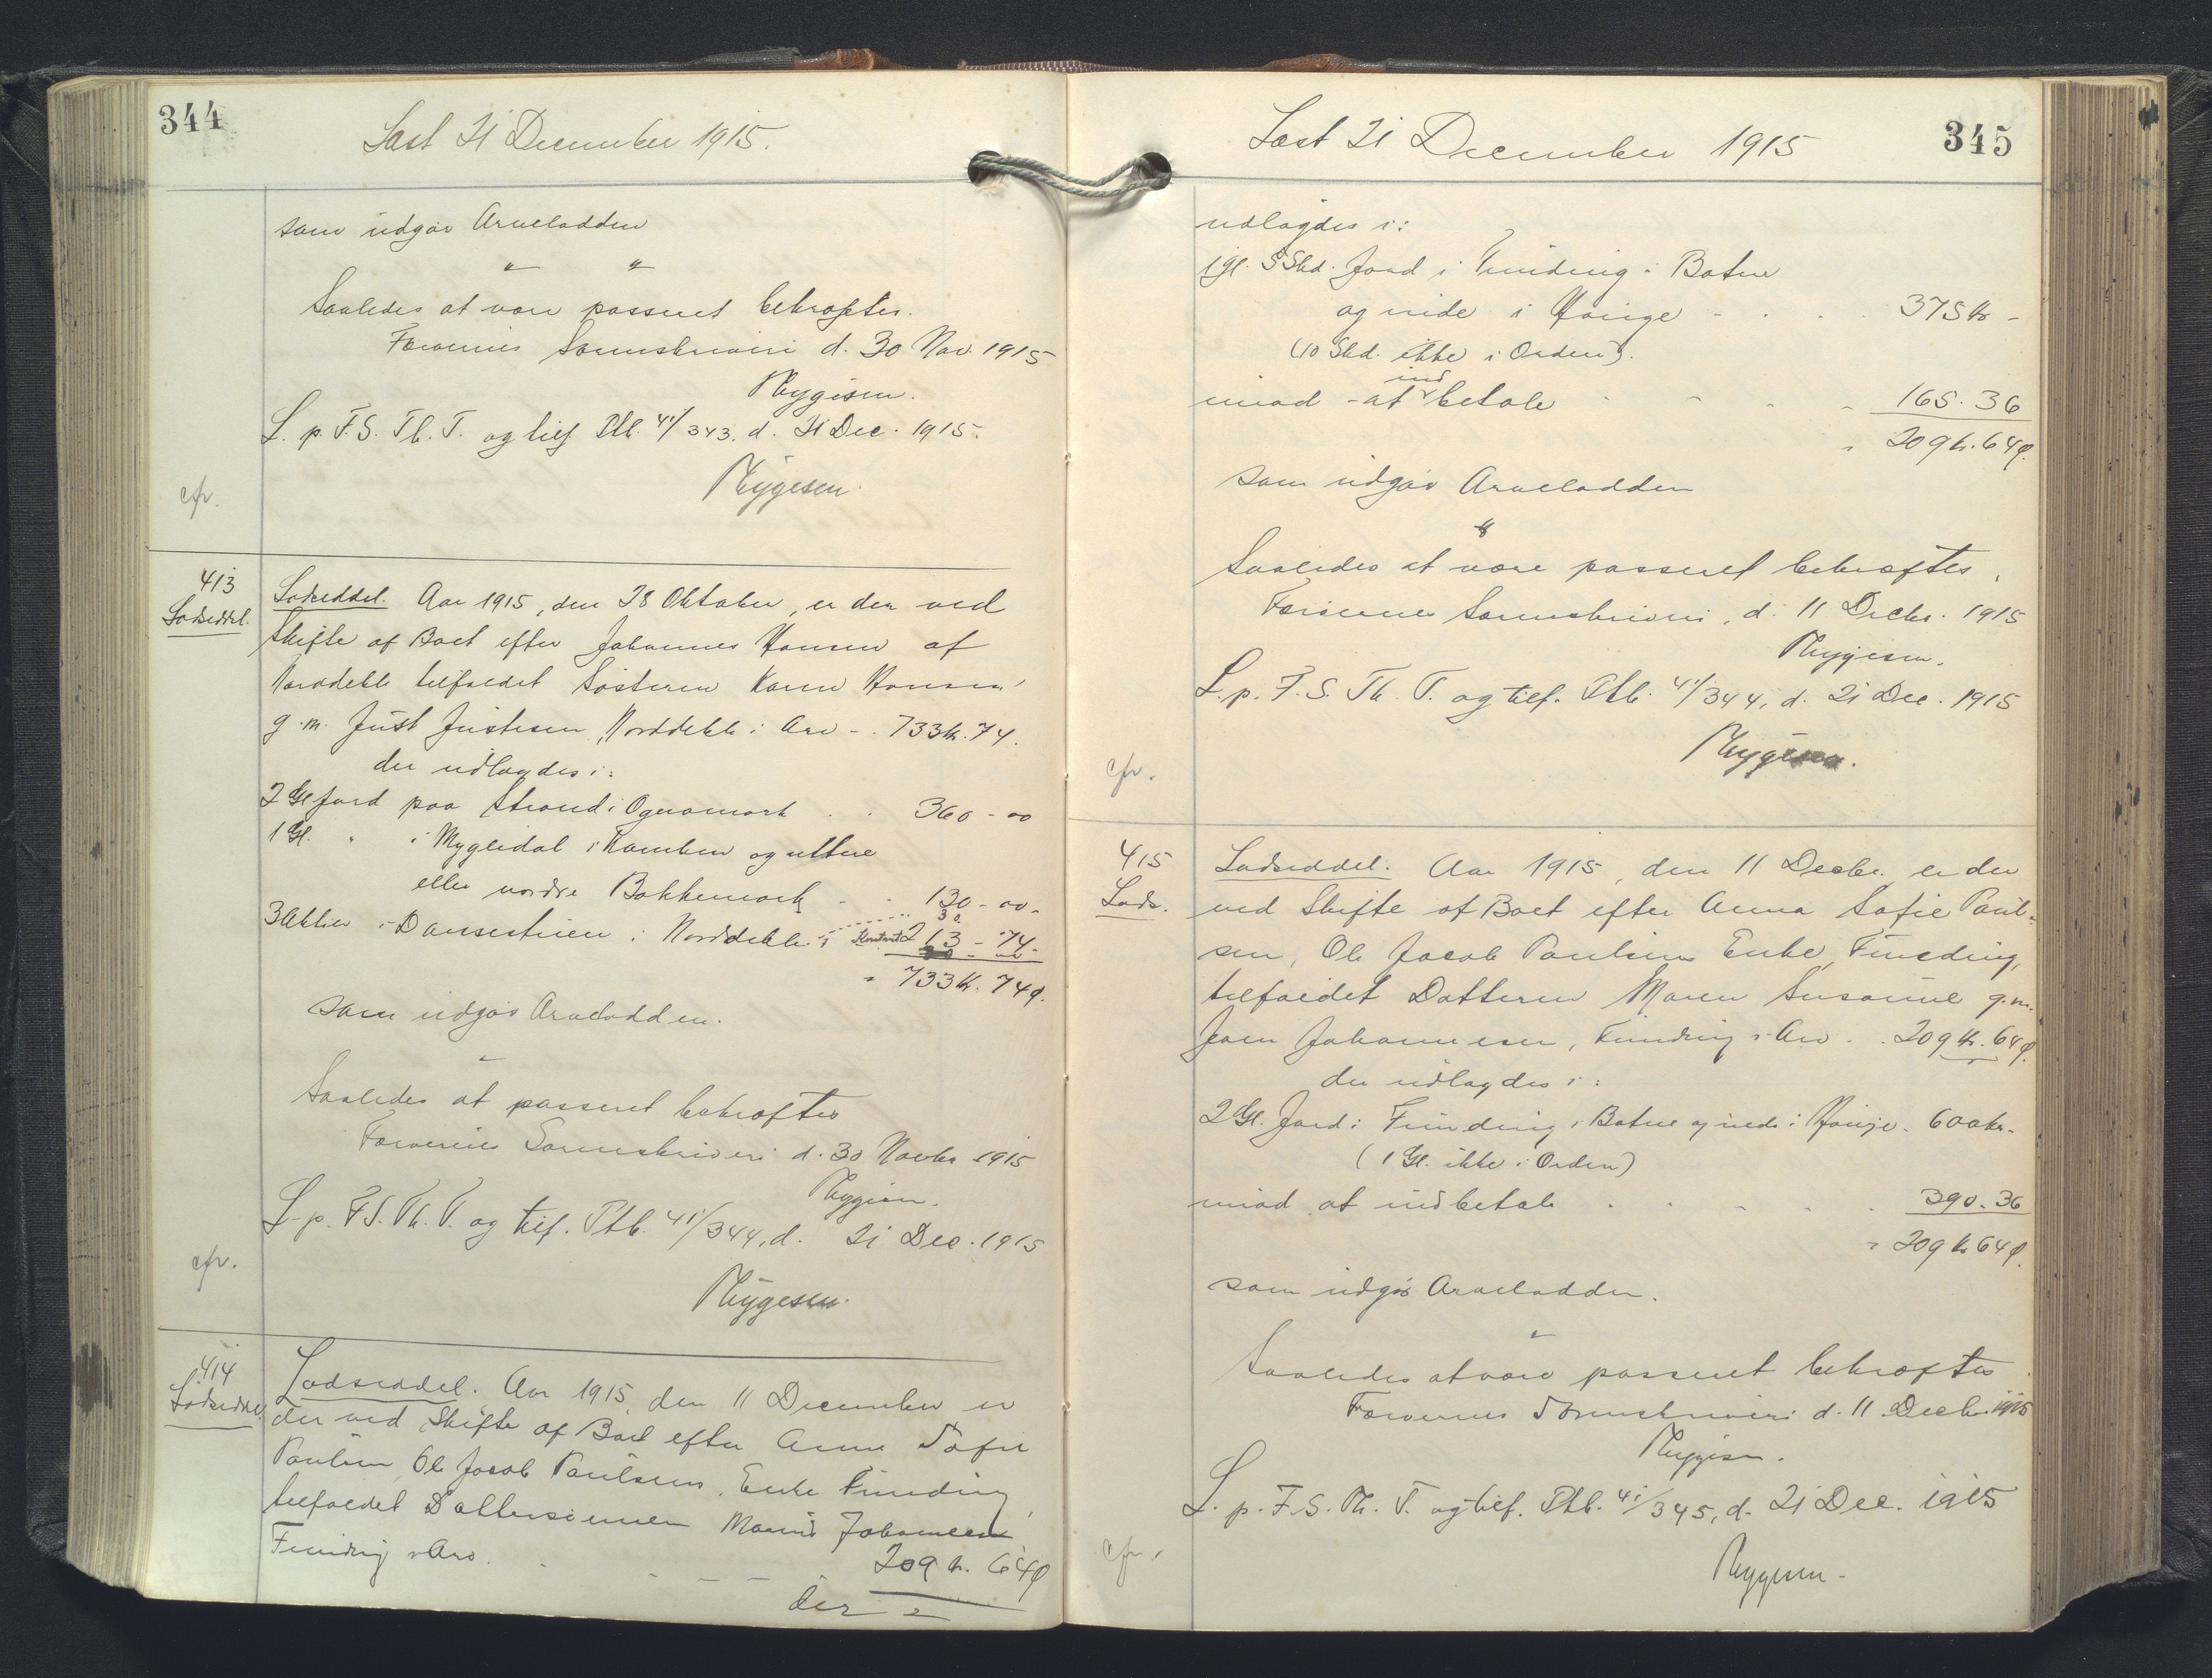 344
Læst 21 December 1915.
som udgør Arvelodden
" "
Saaledes at være passeret bekræftes.
Færøernes Sorenskriveri d. 30 Nov. 1915
Thygesen.
L. p. F.S. Th. T. og tilf Ptb. 41/343. d. 21 Dec. 1915.
Thygesen.
cfr.
413
Lodseddel.
Lodseddel. Aar 1915, den 28 Oktober, er der ved
Skifte af Boet efter Johannes Hansen af
Norddeble tilfaldet Søsteren Karen Hansen,
g. m. Just Justesen, Norddeble i Arv - . 733 Kr. 74.
der udlagdes i:
2 Gl Jord paa Strond i Ognamark . . 360 - 00
1 Gl. " i Myglidal i Kamben og
eller nordre Bakkemark - . 130 - 00 -
3 Aktier i Dansestuen i Norddeble 30
Kontant 213 - 74 -
= 733 Kr. 74 Ø.
som udgør Arvelodden.
"
Saaledes at passeret bekræftes
Færøernes Sorenskriveri d. 30 Novbr 1915
Thygesen.
L. p. F.S. Th. T. og tilf. Ptb. 41/344, d. 21 Dec. 1915
Thygesen.
cfr.
414
Lodseddel
Lodseddel. Aar 1915, den 11 December er
der ved Skifte af Boet efter Anna Sofie
Paulsen, Ole Jacob Paulsens Enke Funding,
tilfaldet Dattersønnen Johannesen
Funding i Arv . - - - - 209 Kr. 64 Ø
der =
345
Læst 21 December 1915
udlagdes i:
1 Gl. 5 Skd. Jord i Funding i Botne
og nide i - . . . 375 Kr -
(10 Skd. ikke i Orden).
imod - at ind betale - - - - 165. 36
= 209 Kr. 64 Ø.
som udgør Arvelodden
"
Saaledes at være passeret bekræftes.
Færøernes Sorenskriveri, d. 11 Decbr. 1915
Thygesen.
L. p. F. S. Th. T. og tilf. Ptb. 41/344, d. 21 Dec. 1915
Thygesen.
cfr.
415
Lods.
Lodseddel. Aar 1915, den 11 Decbr. er der
ved Skifte af Boet efter Anna Sofie Paul-
sen, Ole Jacob Paulsens Enke, Funding,
tilfaldet Datteren Maren Susanne g. m.
Joen Johannesen, Funding i Arv . . 209 Kr. 64 Ø.
der udlagdes i:
2 Gl. Jord i Funding i Botne og nide i - 600 Kr. -
(1 Gl. ikke i Orden)
imod at indbetale . . - - . . 390. 36
= 209 Kr 64 Ø.
som udgør Arvelodden.
"
Saaledes at være passeret bekræftes
Færøernes Sorenskriveri d. 11 Decbr. 1915
Thygesen.
L. p. F. S. Th. T. og tilf. Ptb. 41/345, d. 21 Dec. 1915
Thygesen.
cfr.